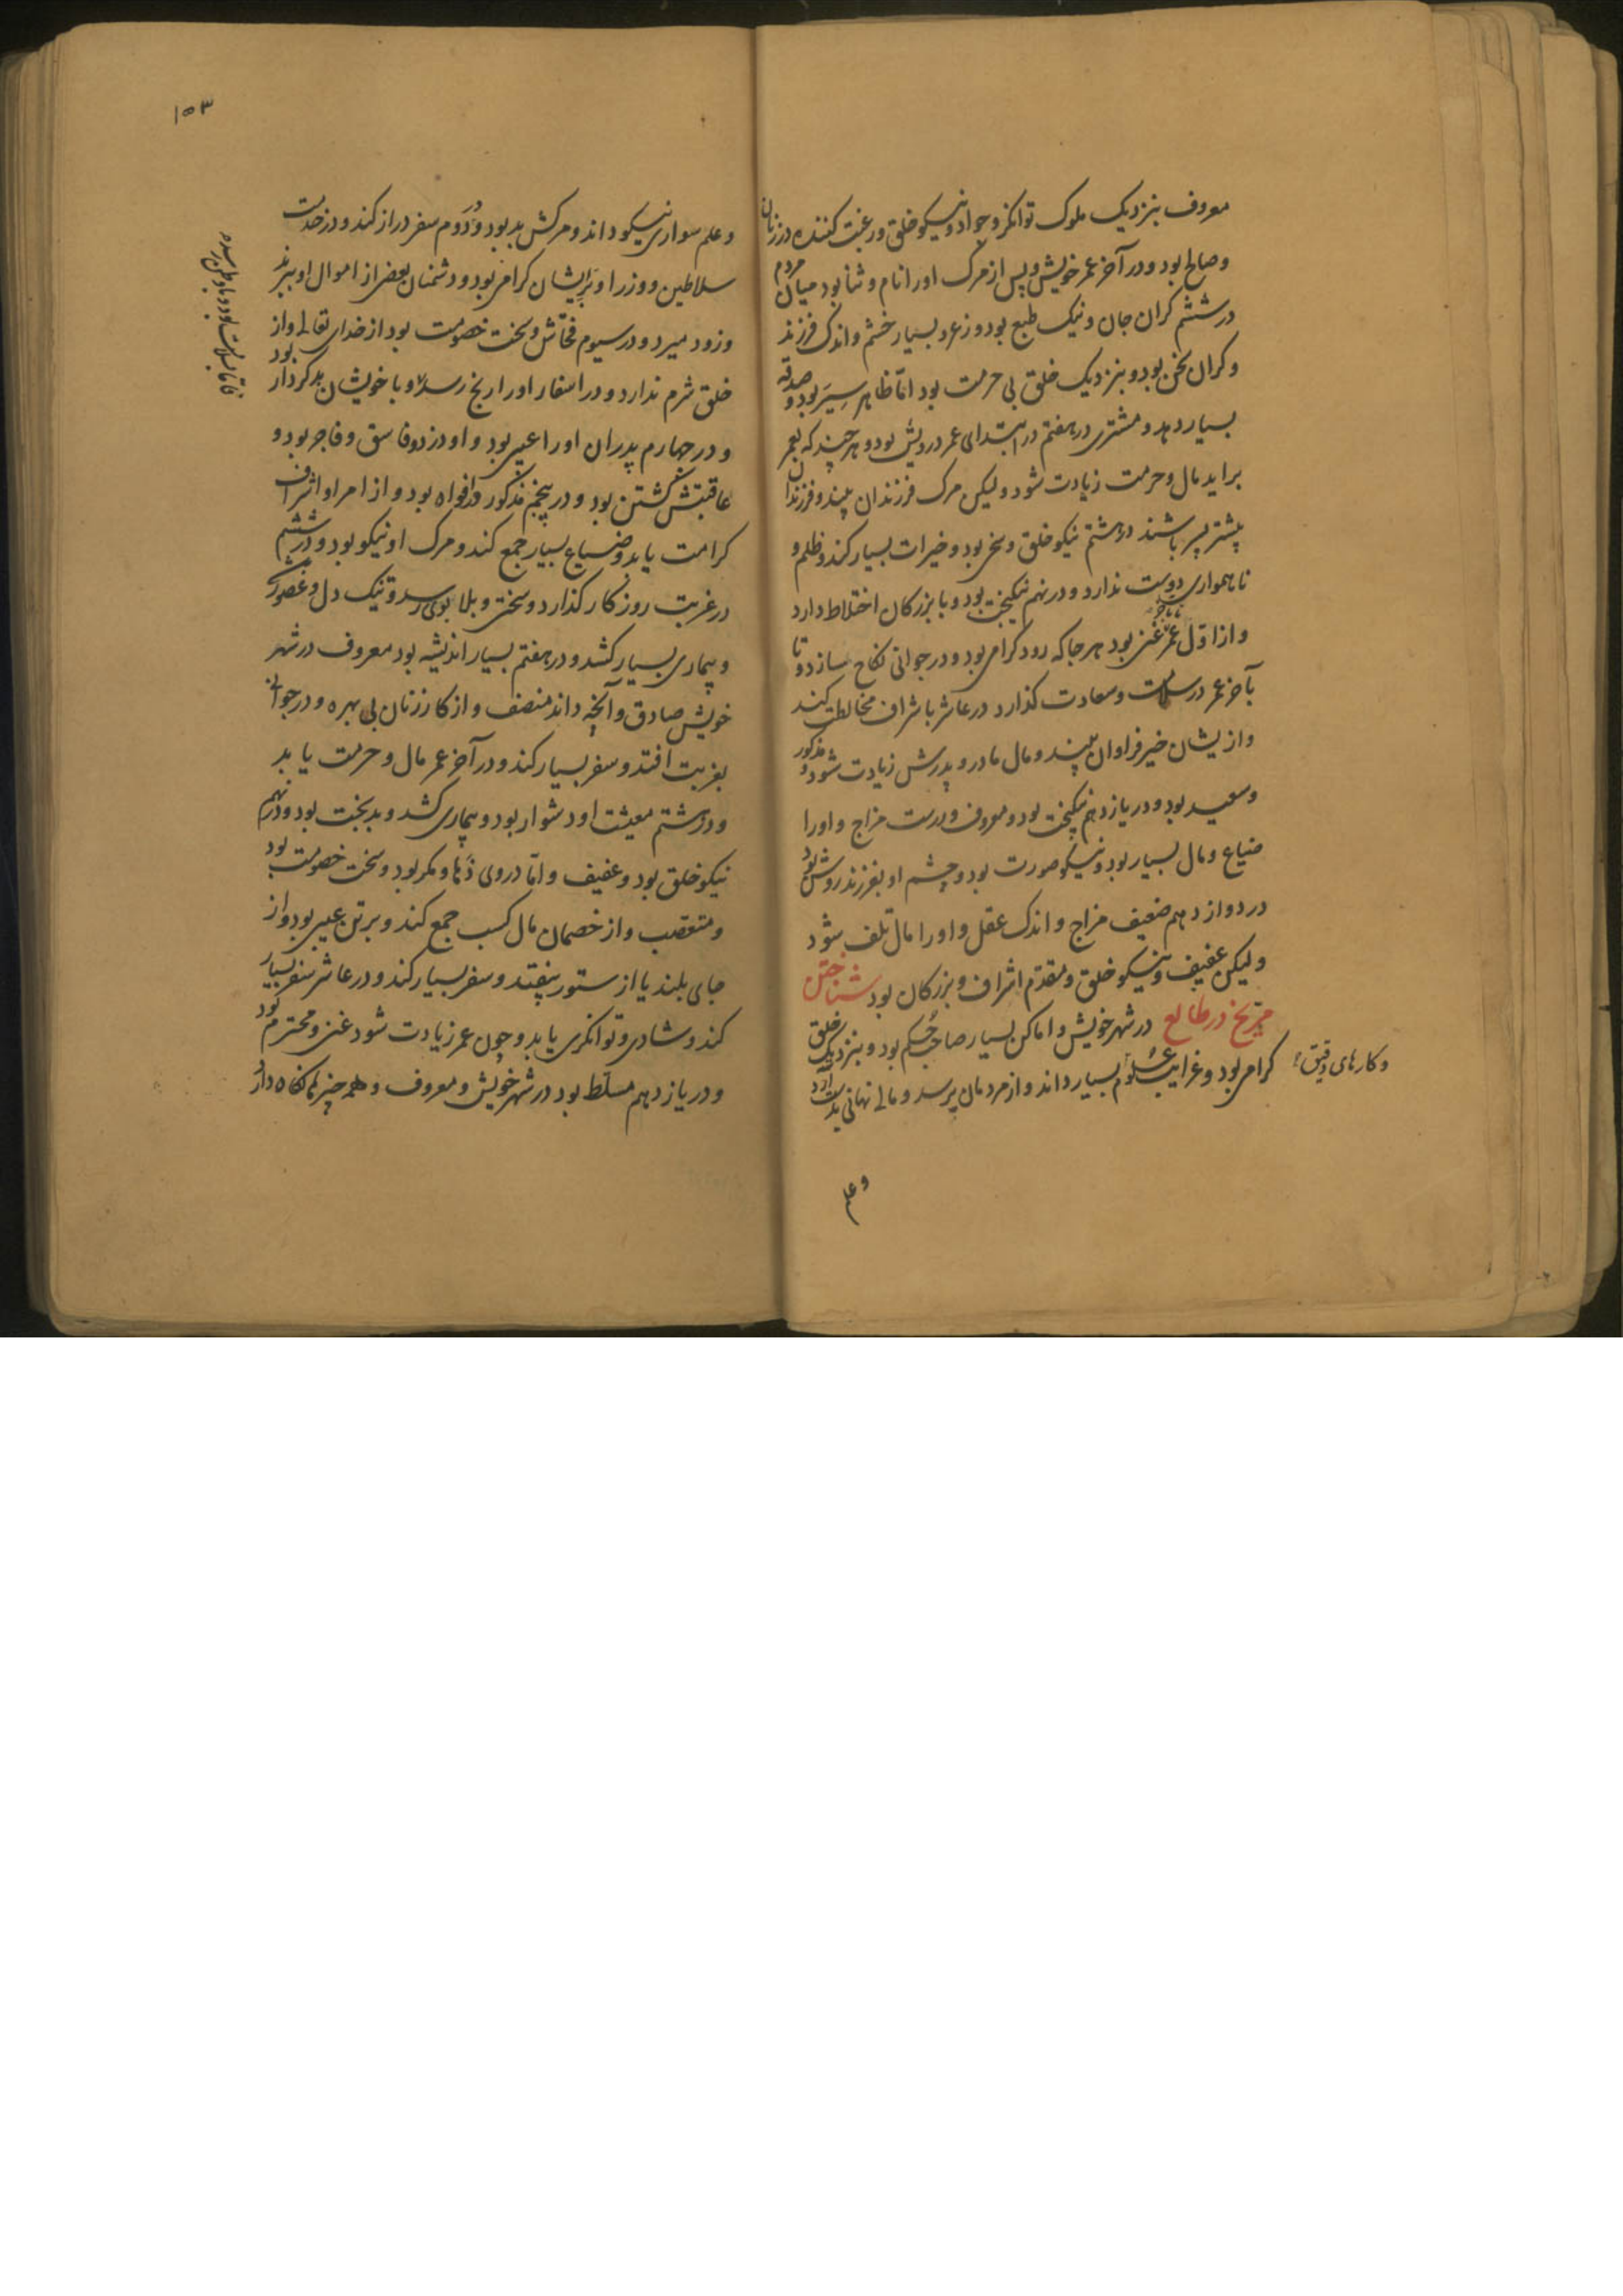 معروف بنزدیک ملوک توانکر و جواد و نیکو خلق و رغبت کننده در زنان
و صالح بود و در آخر عمر خویش و پس از مرک اورا نام و ثنا بود میان مردم
در ششم کران جان و نیک طبع بود و زعر و بسیار خشم و اندک فرزند
و کران سخن بود و بنزدیک خلق بی حرمت بود امّا ظاهر سِیَر بود و صدقه
بسیار دهد و مشتری در هفتم در ابتدای عمر درویش بود و هر چند که بعمر
براید مال و حرمت زیادت شود ولیکن مرک فرزندان بیند و فرزندان
بیشتر پسر باشند در هشتم نیکو خلق و سخی بود و خیرات بسیار کند و ظلم و
ناهمواری دوست ندارد و در نهم نیکبخت بود و با بزرکان اختلاط دارد
و از اوّل عمر غنی بود هر جا که رود کرامی بود و در جوانی نکاح سازد و تا
بآخر عمر در سلامت و سعادت کذارد در عاشر با شراف مخالطت کند
و ازیشان خیر فراوان بیند و مال مادر و پدرش زیادت شود و مذکور
و سعید بود و در یازدهم نیکبخت بود و معروف و درست مزاج و اورا
ضیاع و مال بسیار بود و نیکو صورت بود و چشم او بفرزند روشن بود
در دوازدهم ضعیف مزاج و اندک عقل و اورا مال تلف شود
ولیکن عفیف و نیکو خلق و مقدّم اشراف و بزرکان بود شناختن
مرّیخ در طالع در شهر خویش و اماکن بسیار صاحب حُکم بود و بنزدیک خلق
کرامی بود و غرایب علوم بسیار داند و از مردمان پرسد و مالی نهانی بدست آرد
و کارهای دقیق
و علم
۱۵۳
و علم سواری نیکو داند و مرکش بد بود و در دوم سفر دراز کند و در خدمت
سلاطین و وزرا و برایشان کرامی بود و دشمنان بعضی از اموال او ببرند
و زود میرد و در سیوم فحّاش و سخت خصومت بود از خدای تعالی و از
خلق شرم ندارد و در اسفار اورا رنج رسد و با خویشان بد کردار بود
و در چهارم پدران اورا عیبی بود و او دزد و فاسق و فاجر بود و
عاقبتش کشتن بود و در پنجم مذکور و افواه بود و از امرا و اشراف
کرامت یابد و ضیاع بسیار جمع کند و مرک او نیکو بود و در ششم
در غربت روزکار کذارد و سختی و بلا بوی رسد و تنیک دل و غصّه
و بیماری بسیار کشد و در هفتم بسیار اندیشه بود معروف در شهر
خویش صادق و آنچه داند منصف و از کار زنان بی بهره و در جوانی
بغربت افتد و سفر بسیار کند و در آخر عمر مال و حرمت یابد
و در هشتم معیشت او دشوار بود و بیماری کشد و بدبخت بود و در نهم
نیکو خلق بود و عفیف و امّا در وی دَها و مکر بود و سخت خصومت بود
و متعصّب و از خصمان مال کسب جمع کند و بر تن عیبی بود و از
جای بلند یا از ستور بیفتد و سفر بسیار کند و در عاشر سفر بسیار
کند و شادی و توانکری یابد و چون عمر زیادت شود غنی و محترم کردد
و در یازدهم مسلّط بود در شهر خویش و معروف و همه چیز نکاه دارد